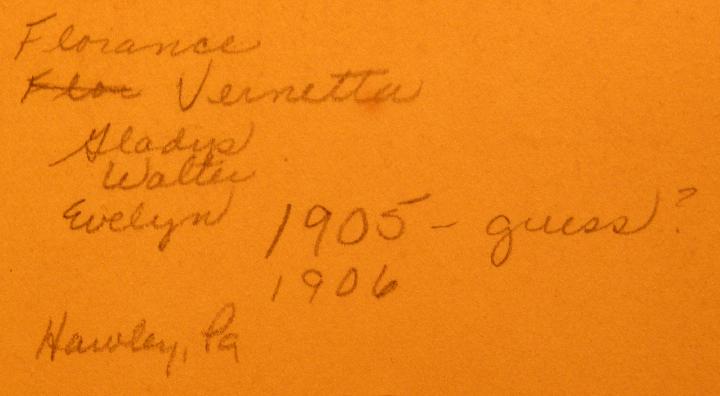 Florance
Flor Vernetta
Gladys
Walter
Evelyn 1905 - guess?
1906
Hawley, Pa